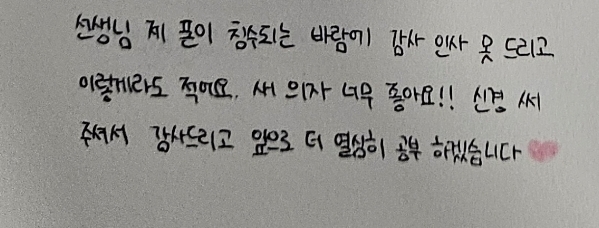 선생님 제 폰이 침수되는 바람에 감사 인사 못 드리고
이렇게라도 적어요. 새 의자 너무 좋아요!! 신경 써
주셔서 감사드리고 앞으로 더 열심히 공부 하겠습니다